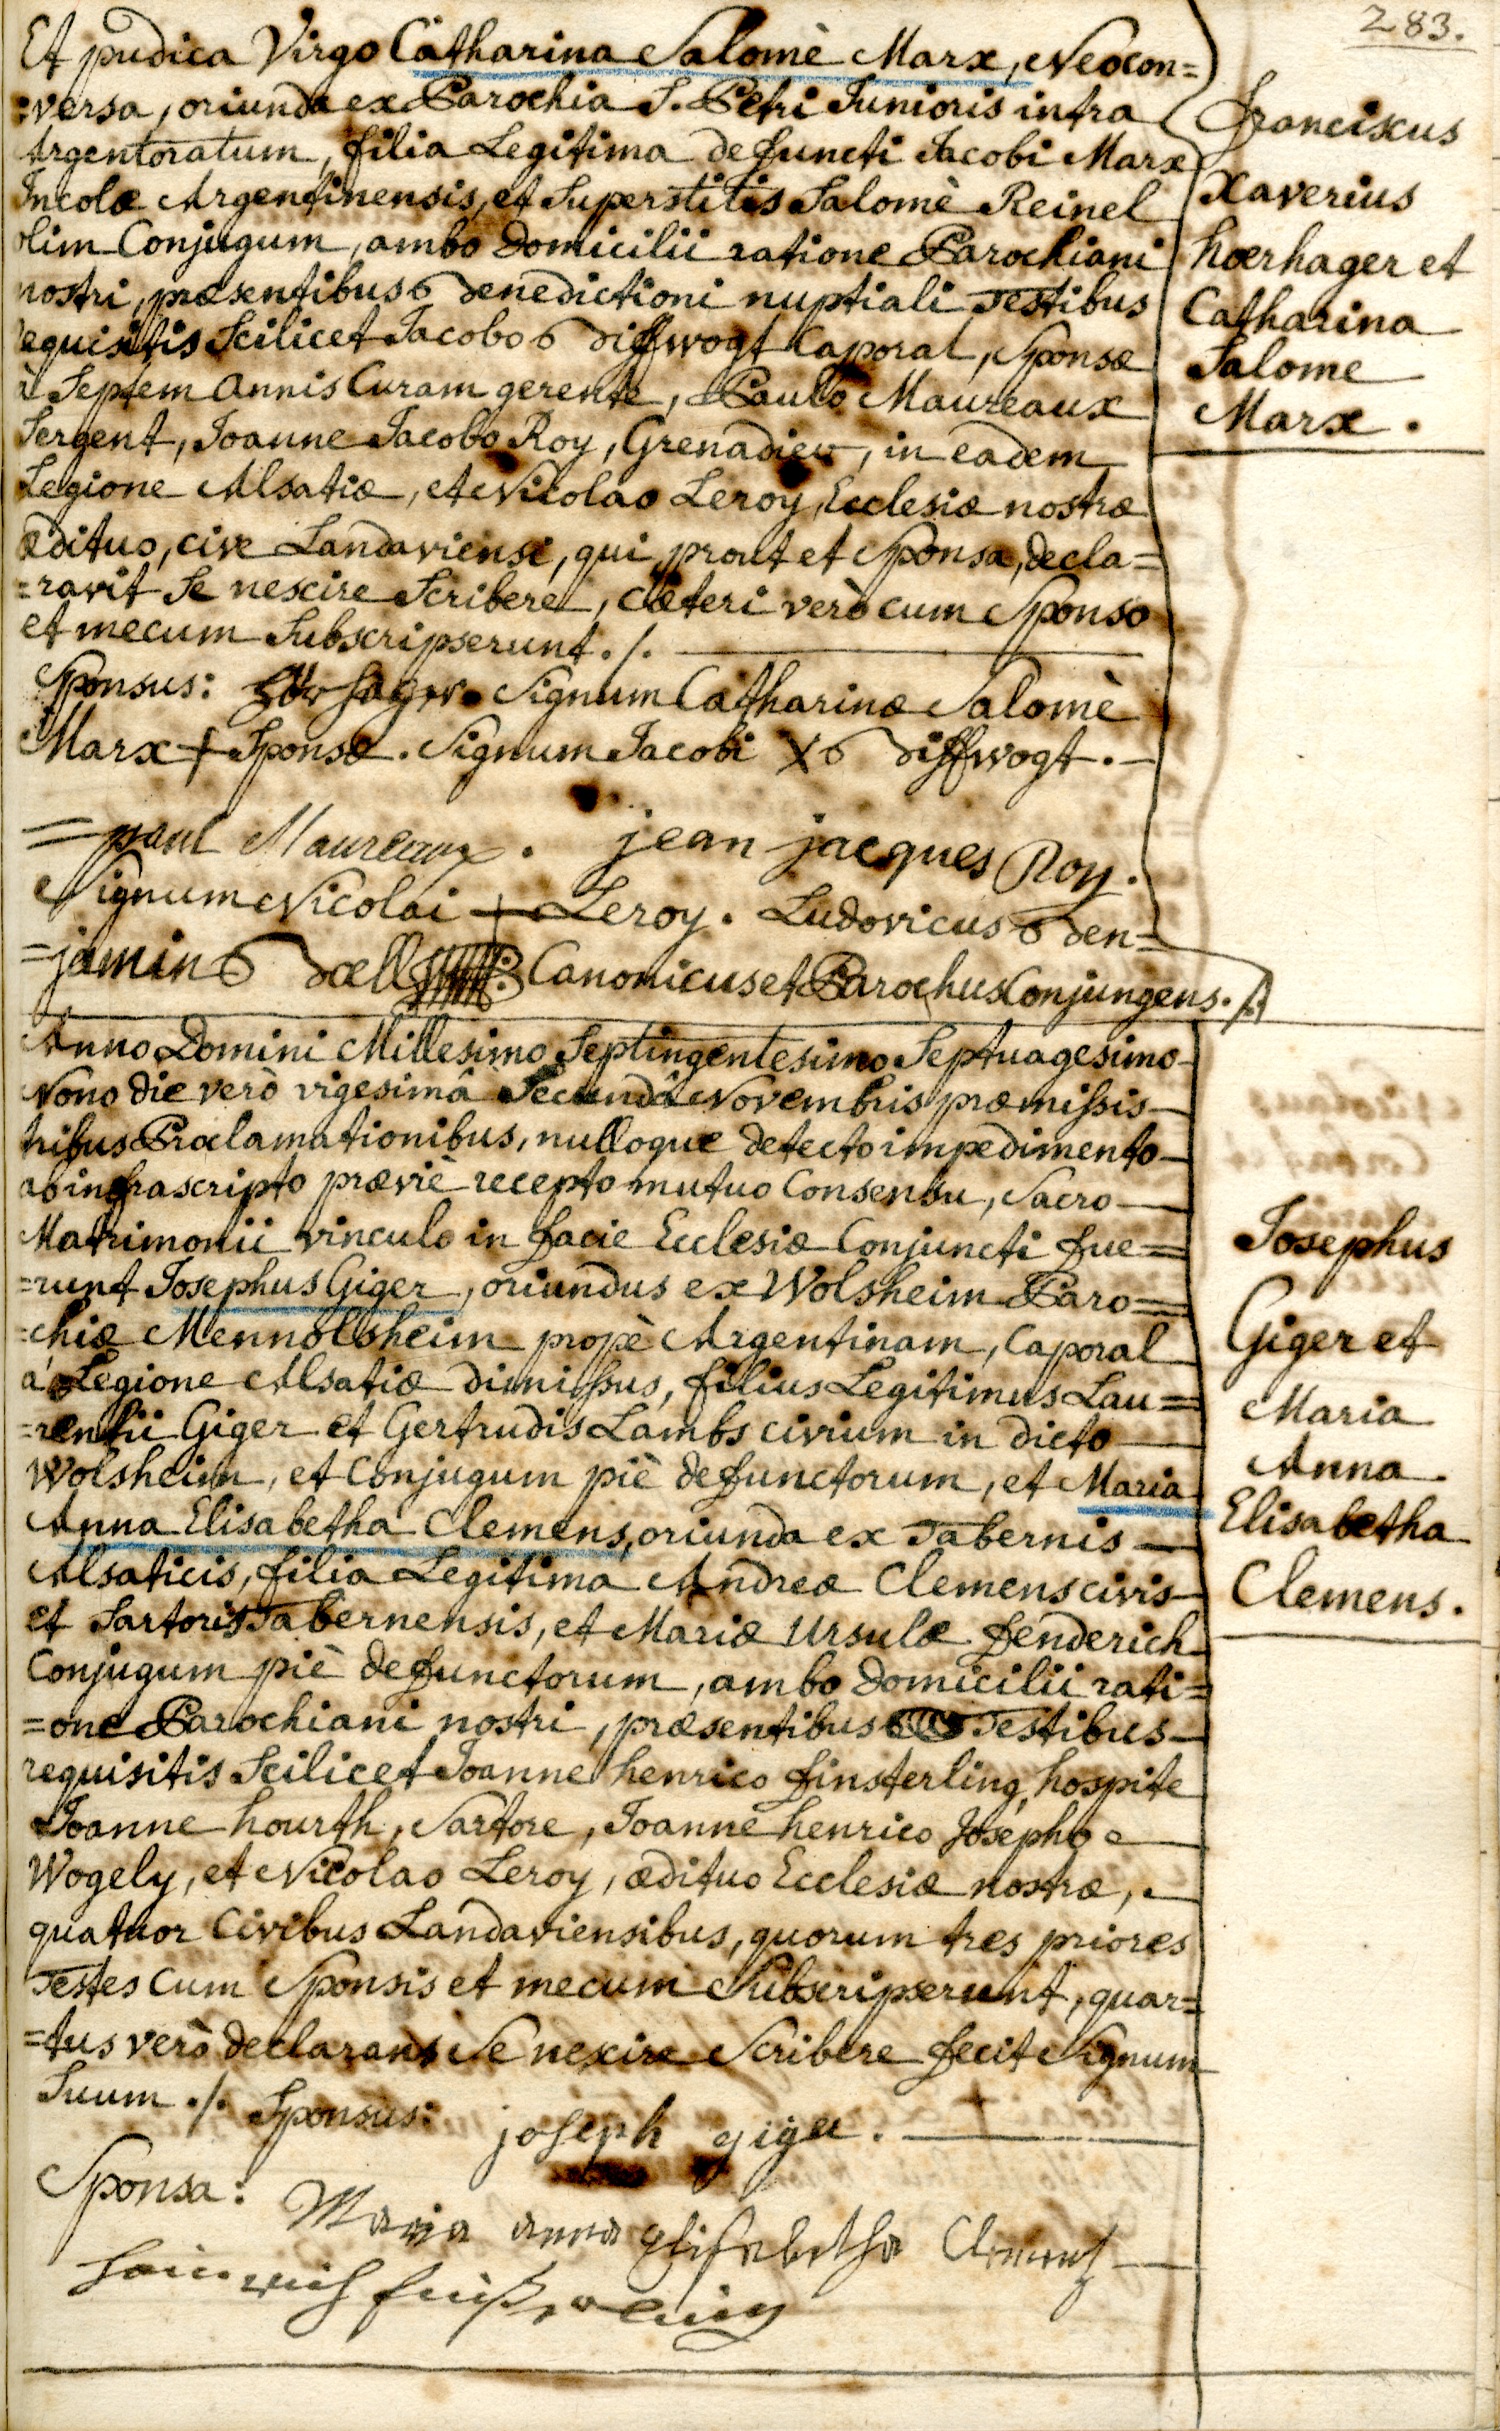 283.
Et pudica Virgo Catharina Salomè Marx, Neocon=
=versa, oriunda ex Parochia S. Petri Junioris intra
Argentoratum, filia Legitima defuncti Jacobi Marx
Incolæ Argentinensis, et Superstitis Salomè Reinel
olim Conjugum, ambo Domicilii ratione Parochiani
nostri, præsentibus Benedictioni nuptiali Testibus
requisitis Scilicet Jacobo Biffwogt Caporal, Sponsæ
à Septem annis Curam gerente, Paulo Maureaux
Sergent, Joanne Jacobo Roy, Grenadier, in eadem
Legione Alsatiæ, et Nicolao Leroy, Ecclesiæ nostræ
ædituo, cive Landaviensi, qui, prout et Sponsa, decla=
=ravit Se nescire Scribere, cæteri verò cum Sponso
et mecum Subscripserunt ./.
Sponsus: Signum Catharinæ Salomè
Marx + Sponsæ. Signum Jacobi X Biffwogt.
= paul Maureaux. jean jacques Roy.
Signum Nicolai + Leroy. Ludovicus Ben=
=jamin Bœll Canonicus et Parochus Conjungens. ./.
Franciscus
Xaverius
hœrhager et
Catharina
Salome
Marx.
Anno Domini Millesimo Septingentesimo Septuagesimo
Nono die verò vigesimâ Secundâ Novembris præmissis
tribus Proclamationibus, nulloque detecto impedimento
ab infrascripto præviè recepto mutuo Consensu, Sacro
Matrimonii vinculo in facie Ecclesiæ Conjuncti fue=
=runt Josephus Giger, oriundus ex Wolsheim Paro=
=chiæ Mennolsheim propè Argentinam, Caporal
à Legione Alsatiæ dimissus, filius Legitimus Lau=
=rentii Giger et Gertrudis Lambs civium in dicto
Wolsheim, et Conjugum piè defunctorum, et Maria
Anna Elisabetha Clemens, oriunda ex Tabernis
Alsaticis, filia Legitima Andreæ Clemens civis
et Sartoris Tabernensis, et Mariæ Ursulæ fenderich
Conjugum piè defunctorum, ambo Domicilii rati=
=one Parochiani nostri, præsentibus Testibus
requisitis Scilicet Joanne henrico finsterling, hospite
Joanne hourth, Sartore, Joanne henrico Josepho
Wogely, et Nicolao Leroy, ædituo Ecclesiæ nostræ,
quatuor Civibus Landaviensibus, quorum tres priores
Testes Cum Sponsis et mecum Subscripserunt, quar=
=tus verò declarans Se nescire Scribere fecit Signum
Suum ./. Sponsus: joseph giger.
Sponsa: Maria anna Elisabetha Clemens
Josephus
Giger et
Maria
Anna
Elisabetha
Clemens.